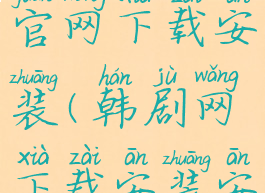 官网下载安
zhuāng hán jù wǎng
装(韩剧网
xià zài ān zhuāng ān
下载安装安